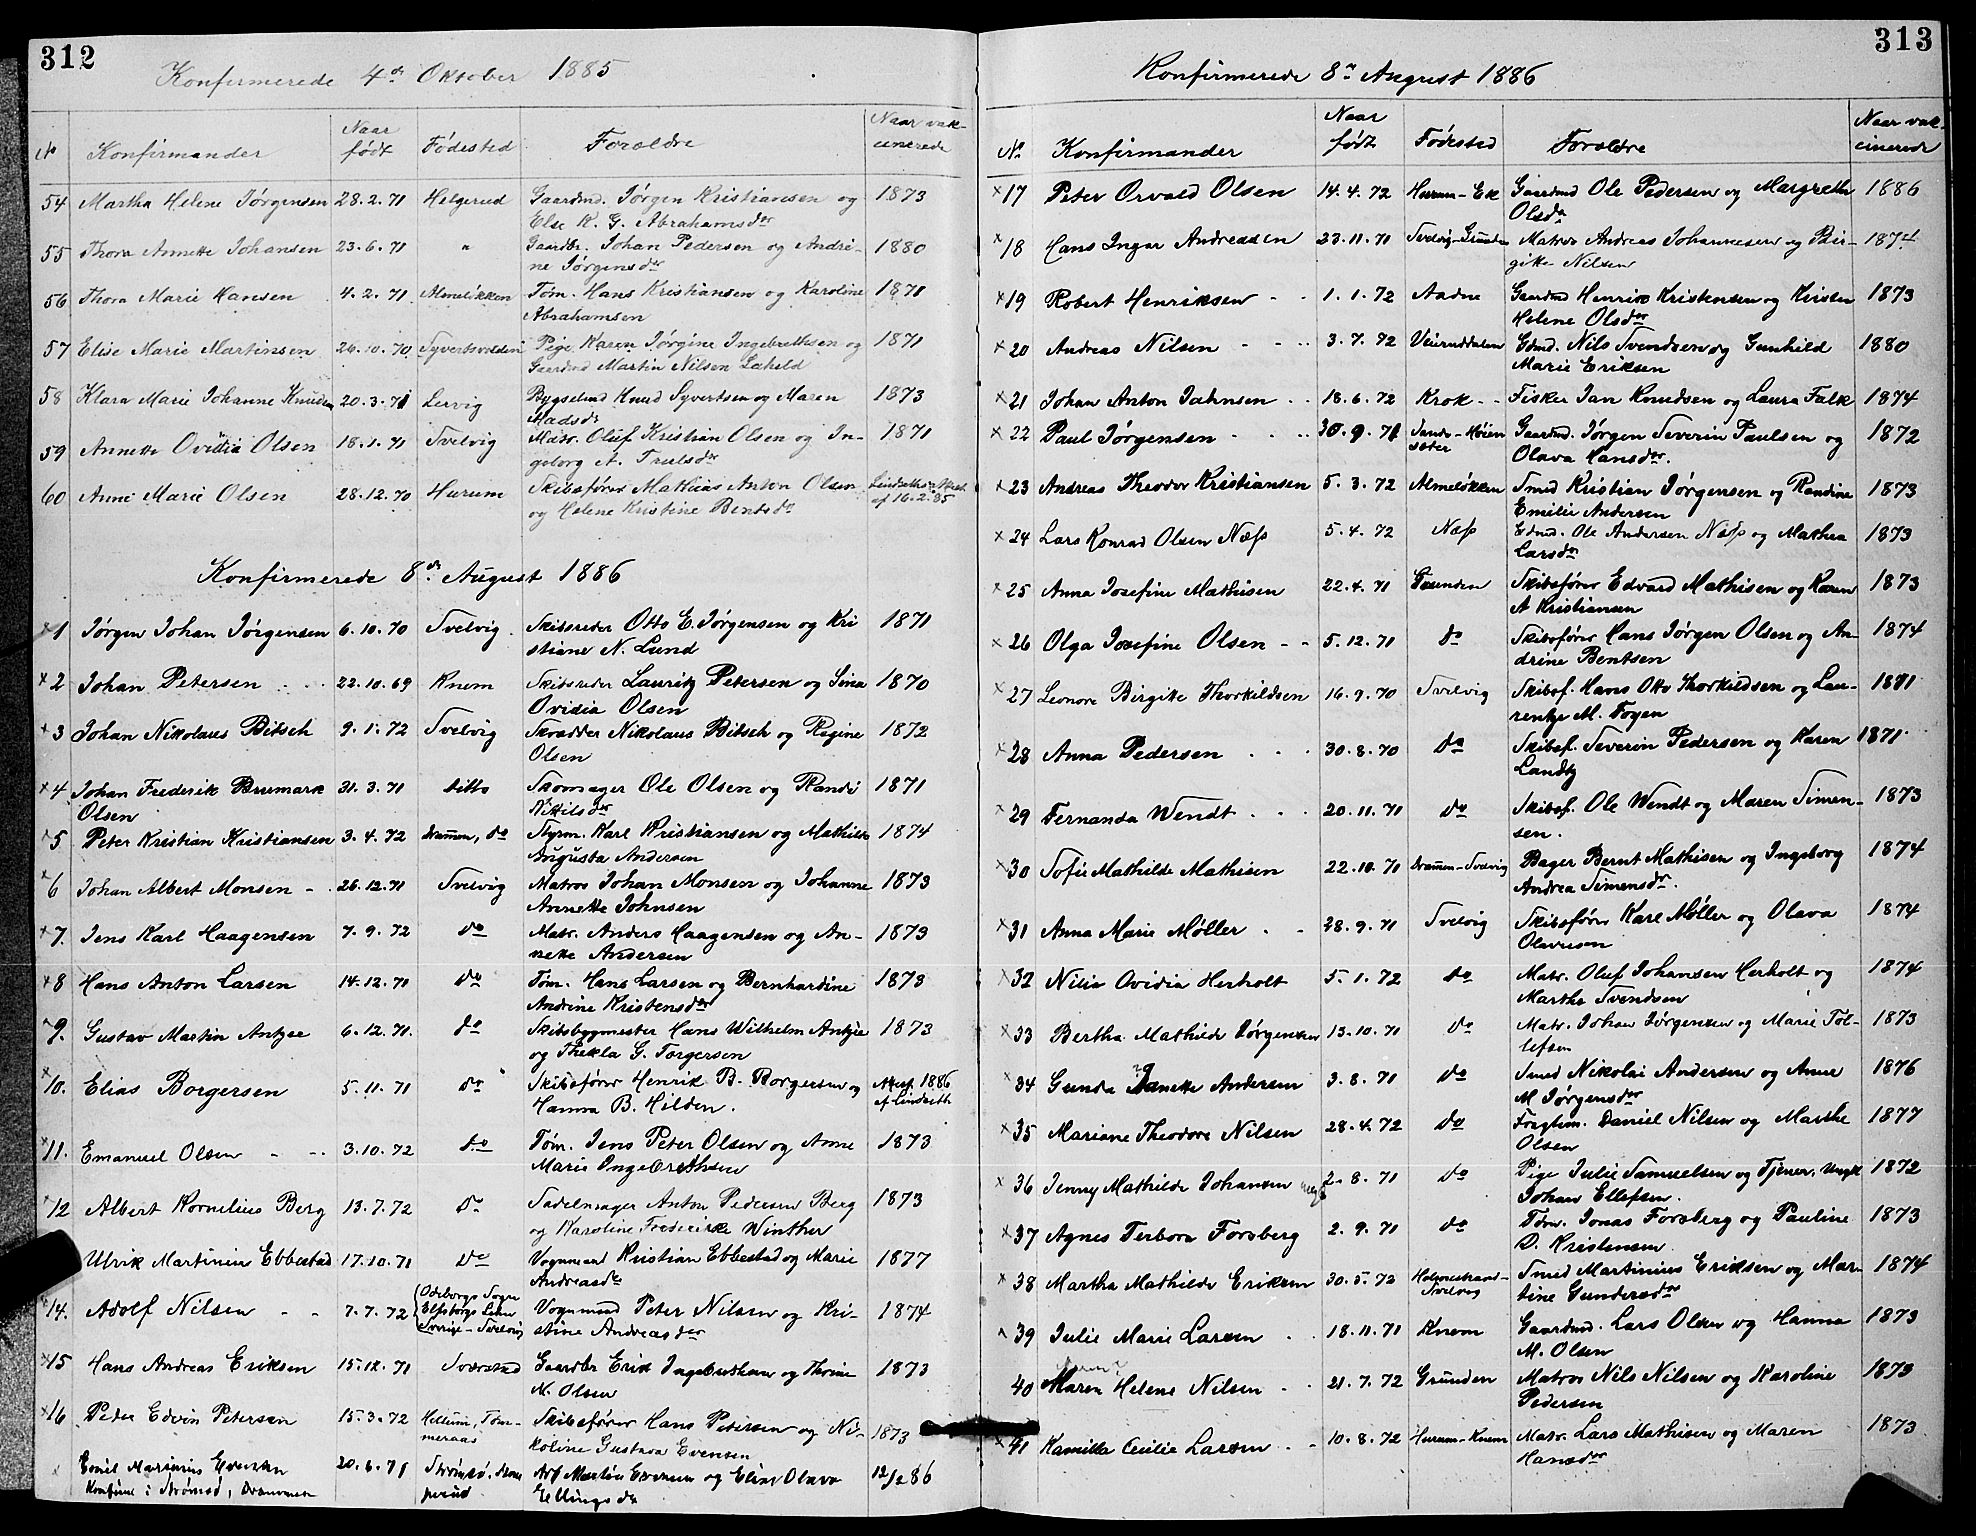 312
Konfirmerede 4de Oktober 1885
No Konfirmander Naar født Fødested Foræeldre Naar vakcinerede
54 Martha Helene Jørgensen 28.2.71 Helgerud Gaardmd. Jørgen Kristiansen og 1873
Else K. G. Abrahamsdr
55 Thora Annette Johansen 23.6.71 " Gaardbr. Johan Pedersen og Andri- 1880
ne Jørgensdr
56 Thora Marie Hansen 4.2.71 Almeløkken Tøm. Hans Kristiansen og Karoline 1871
Abrahamsen
57 Elise Marie Martinsen 26.10.70 Syvertsvolden Pige Karen Jørgine Ingebrethsen og 1871
Gaardmd Martin Nilsen
58 Klara Marie Johanne Knudsen 20.3.71 Lervig Bygselmd Knud Syvertsen og Maren 1873
Madsdr
59 Annette Ovidia Olsen 18.1.71 Svelvig Matr. Oluf Kristian Olsen og In- 1871
geborg A. Trulsdr
60 Anne Marie Olsen 28.12.70 Hurum Skibsfører Mathias Anton Olsen
og Helene Kristine Bentsdr af 16.2.85
Konfirmerede 8de August 1886
x1 Jørgen Johan Jørgensen 6.10.70 Svelvig Skibsreder Otto E. Jørgensen og Kri 1871
stiane N. Lund
x2 Johan Petersen 22.10.69 Knem Skibsreder Lauritz Petersen og Sina 1870
Ovidia Olsen
x3 Johan Nikolaus Bitsch 9.1.72 Svelvig Skrædder Nikolaus Bitsch og Regine 1872
Olsen
x4 Johan Frederik Brumark 31.3.71 ditto Skomager Ole Olsen og Randi 1871
Olsen Nikilsdr
x5 Peter Kristian Kristiansen 3.4.72 Drammen, do Styrm. Karl Kristiansen og Mathilde 1874
Augusta Andersen
x6 Johan Albert Monsen 26.12.71 Svelvig Matros Johan Monsen og Johanne 1873
Annette Johnsen
x7. Jens Karl Haagensen 7.9.72 do Matr. Anders Haagensen og An- 1873
nette Andersen
x8 Hans Anton Larsen 14.12.71 do Tøm. Hans Larsen og Bernhardine 1873
Andrine Kristensdr
x9. Gustav Martin Antzee 6.12.71. do Skibsbygmester Hans Wilhelm Antzee 1873
og Thekla G. Torgersen
x10. Elias Borgersen 5.11.71 do Skibsfører Henrik B. Borgersen og Attest 1886
Hanna B. Hilden. af Lindseth
x11. Emanuel Olsen 3.10.72 do Tøm. Jens Peter Olsen og Anne 1873
Marie Ingebrethsen
x12 Albert Kornelius Berg 13.7.72 do Sadelmager Anton Pedersen Berg 1873
og Karoline Frederikke Winther
Ulrik Martinius Ebbestad 17.10.71 do Vognmand Kristian Ebbestad og Marie 1877
Andreasdr
x14. Adolf Nilsen 7.7.72 Ødeborgs Sogn Elfsborgs Län Sverige-Svelvig Vognmand Peter Nilsen og Kri- 1874
stine Andreasdr
x15 Hans Andreas Eriksen 15.12.71 Sværstad Gaardbr Erik Ingebrethsen og Thrine 1873
M. Olsen
x16 Peder Edvin Petersen 15.3.72 Hellum, Tømmeraas Skibsfører Hans Petersen og Ni- 1873
koline Gustava Evensen
Emil Marinius Evensen 20.6.71 Strømsø, Martin Evensen og Eline Olava 12/2 86
Konfirm. i Strømsø, Drammen Ellingsdr
313
Konfirmerede 8de August 1886
No Konfirmander Naar født Fødested Forældre Naar vakcinerede
x17 Peter Orvald Olsen 14.4.72 Hurum-Ek Gaardmd Ole Pedersen og Margrethe 1886
Olsdr
x18 Hans Ingar Andreassen 23.11.71 Svelvig-Grunden Matros Andreas Johannesen og Bir- 1874
gitte Nilsen
x19 Robert Henriksen 1.1.72 Aadne Gaardmd Henrik Kristensen og Kirsten 1873
Helene Olsdr
x20 Andreas Nilsen 3.7.72 Veiruddalen Gdmd. Nils Svendsen og Gunhild 1880
Marie Eriksen
x21 Johan Anton Jahnsen 18.6.72 Krok Fisker Jan Knudsen og Laura Falk 1874
x22 Paul Jørgensen 30.9.71 Sande-Høiensæter Gaardmd. Jørgen Severin Paulsen og 1872
Olava Hansdr.
x23 Andreas Theodor Kristiansen 5.3.72 Almeløkken Smed Kristian Jørgensen og Randine 1873
Emilie Andersen
x24 Lars Konrad Olsen Næss 5.4.72 Næss Gdmd. Ole Andersen Næss og Mathea 1873
Larsdr
x25 Anna Josefine Mathisen 22.4.71 Grunden Skibsfører Edvard Mathisen og Karen 1873
A Kristiansen
x26 Olga Josefine Olsen 5.12.71 do Skibsfører Hans Jørgen Olsen og An- 1874
drine Bentsen
x27 Leonore Birgitte Thorkildsen 16.9.70 Svelvig Skibsf. Hans Otto Thorkildsen og Lau- 1871
rentze M. Foyen
x28 Anna Pedersen 30.8.70 do Skibsf. Severin Pedersen og Karen 1871
Landtz
x29 Fernanda Wendt 20.11.71 do Skibsf. Ole Wendt og Maren Simen- 1873
sen.
x30 Sofie Mathilde Mathisen 22.10.71 Drammen-Svelvig Bager Bernt Mathisen og Ingeborg 1874
Andrea Simensdr.
x31 Anna Marie Møller 28.9.71 Svelvig Skibsfører Karl Møller og Olava 1874
Olavesen
x32 Nilia Ovidia Herholt 5.1.72 do Matr. Oluf Johansen Herholt og 1874
Marthe Svendsen
x33 Bertha Mathilde Jørgensen 13.10.71 do Matr. Johan Jørgensen og Marie Tol- 1873
lefsen
x34 Gunda Janette Andersen 3.8.71 do Smed Nikolai Andersen og Anne 1876
M Jørgensdr
x35 Mariane Theodore Nilsen 28.4.72 do Fragtem. Daniel Nilsen og Marthe 1877
Olsen
x36 Jenny Mathilde Johansen 2.8.71 do Pige Julie Samuelsen og Tjener, Ungk 1872
Johan Ellefsen.
x37 Agnes Terbora Forsberg 2.9.71 do Tøm. Jonas Forsberg og Pauline 1873
D. Kristensen
x38 Martha Mathilde Eriksen 30.5.72 Holmestrand-Svelvig Smed Martinius Eriksen og Mar- 1874
tine Gundersdr
x39 Julie Marie Larsen 18.11.71 Knem Gaardmd. Lars Olsen og Hanna 1873
M. Olsen
40 Maren Helene Nilsen 21.7.72 Grunden Matros Nils Nilsen og Karoline 1873
Pedersen
x41 Kamilla Cecilie Larsen 10.8.72 Hurum-Knem Matr. Lars Mathisen og Maren 1873
Hansdr